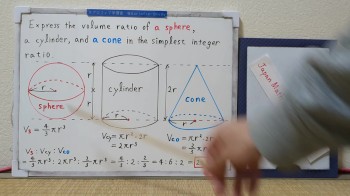 Express the volume ratio of a sphere,
a cylinder, and a cone in the simplest integer
ratio.
r
r
r
2r
sphere
cylinder
cone
r
r
Vs = 4/3 πr³
Vcy = πr²·2r
= 2πr³
Vco = πr²·2r
Vs : Vcy : Vco
= 4/3 πr³ : 2πr³ : 2/3 πr³ = 4/3 : 2 : 2/3 = 4 : 6 : 2 =
Japan Math